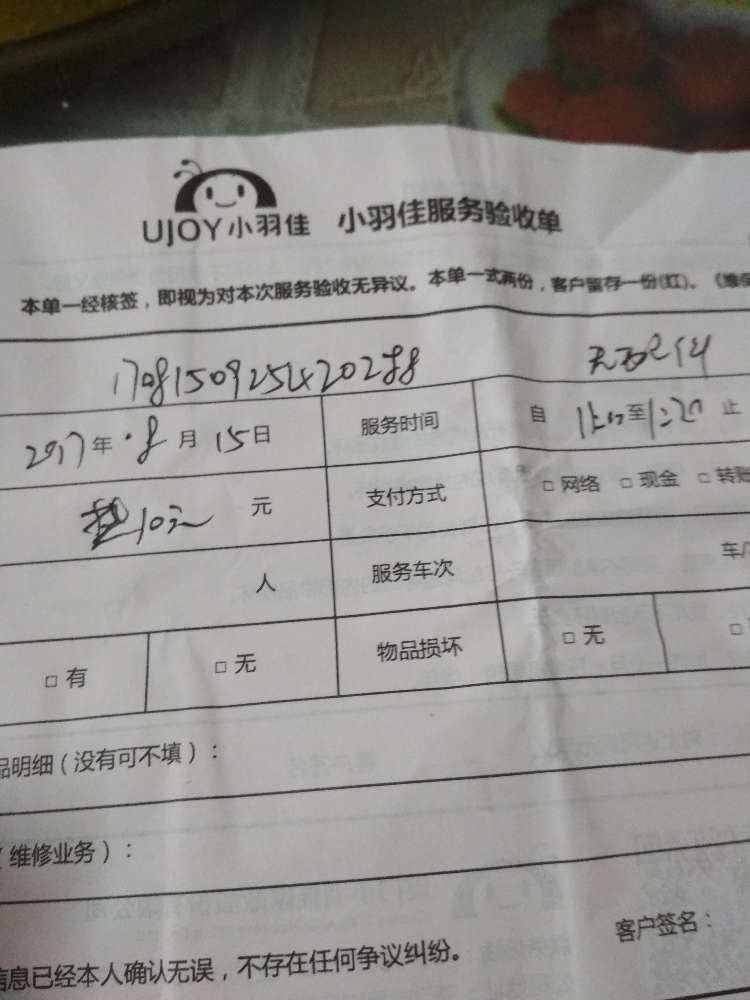 UJOY小羽佳 小羽佳服务验收单
本单一经核签，即视为对本次服务验收无异议。本单一式两份，客户留存一份(红)。
1708150925420288 无配件
2017年·8月15日 服务时间 自 至1:20止
10元 元 支付方式 □网络 □现金 □转账
人 服务车次
□有 □无 物品损坏 □无 □
品明细（没有可不填）：
（维修业务）：
信息已经本人确认无误，不存在任何争议纠纷。 客户签名：